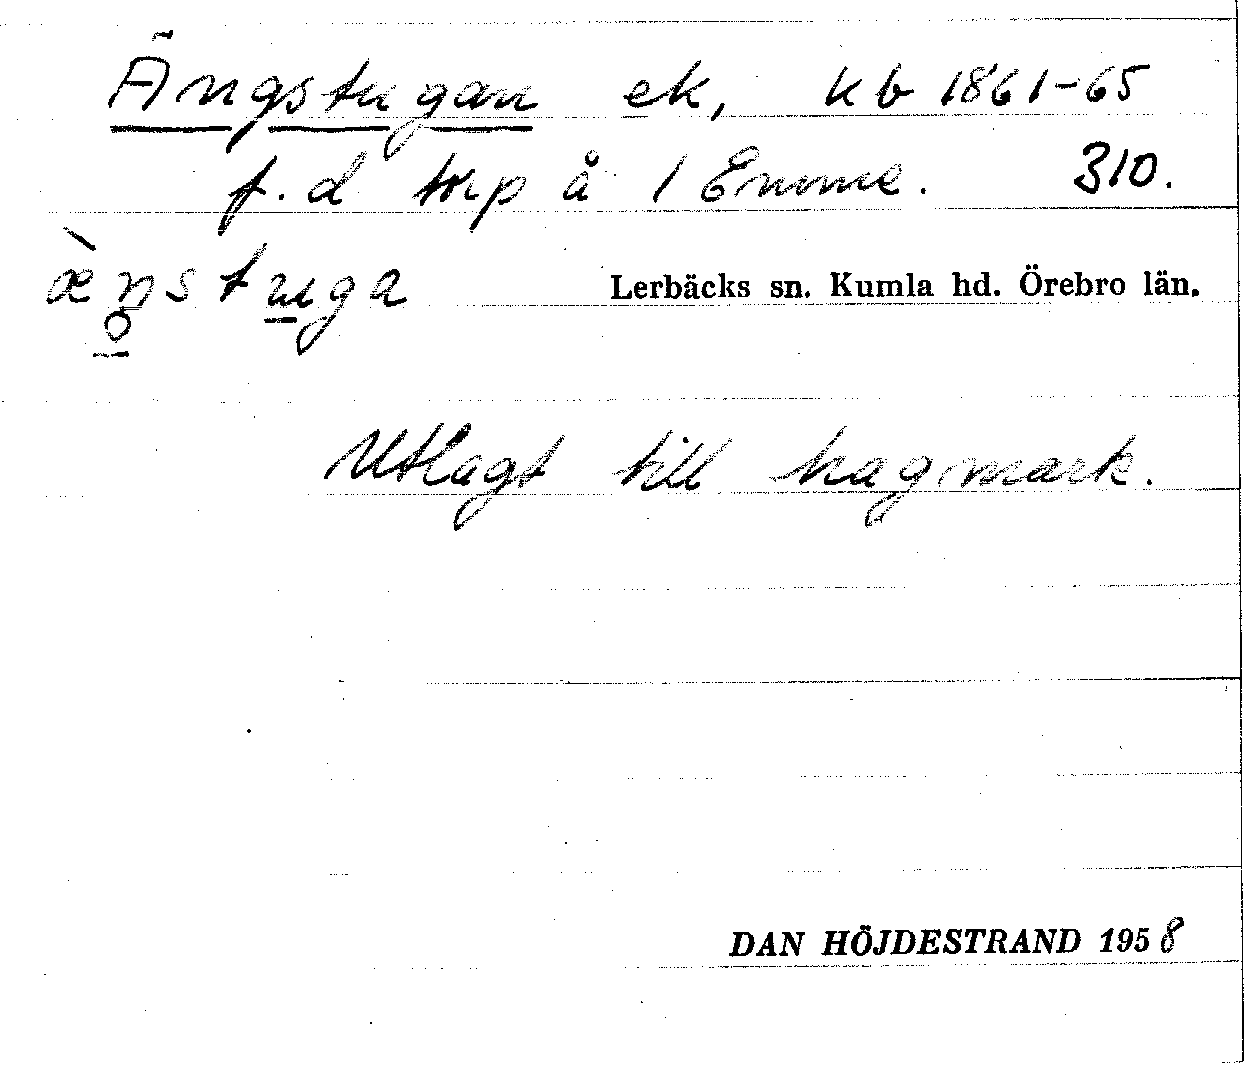 Ängstugan ek, kb 1861-65
f.d torp å 1 Emme. 310.
æ̀n̥stuga Lerbäcks sn. Kumla hd. Örebro län.
Utlagt till hagmark.
DAN HÖJDESTRAND 1958